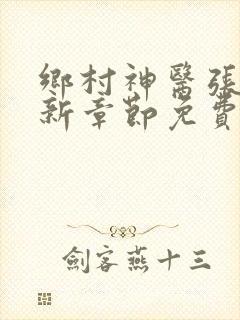 鄉村神醫張
新章節免費
劍客燕十三